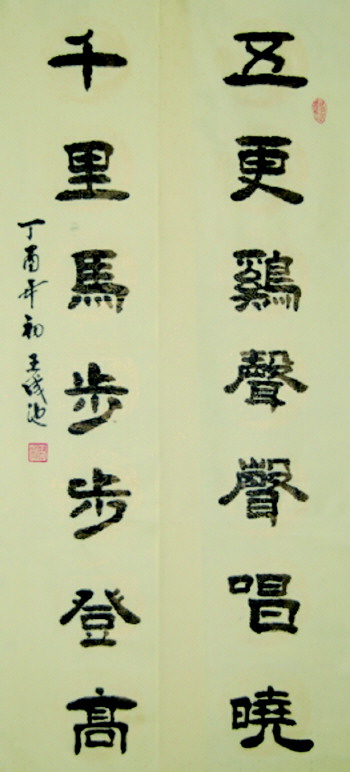 五更鷄聲聲唱曉
千里馬步步登高
丁酉年初王成池